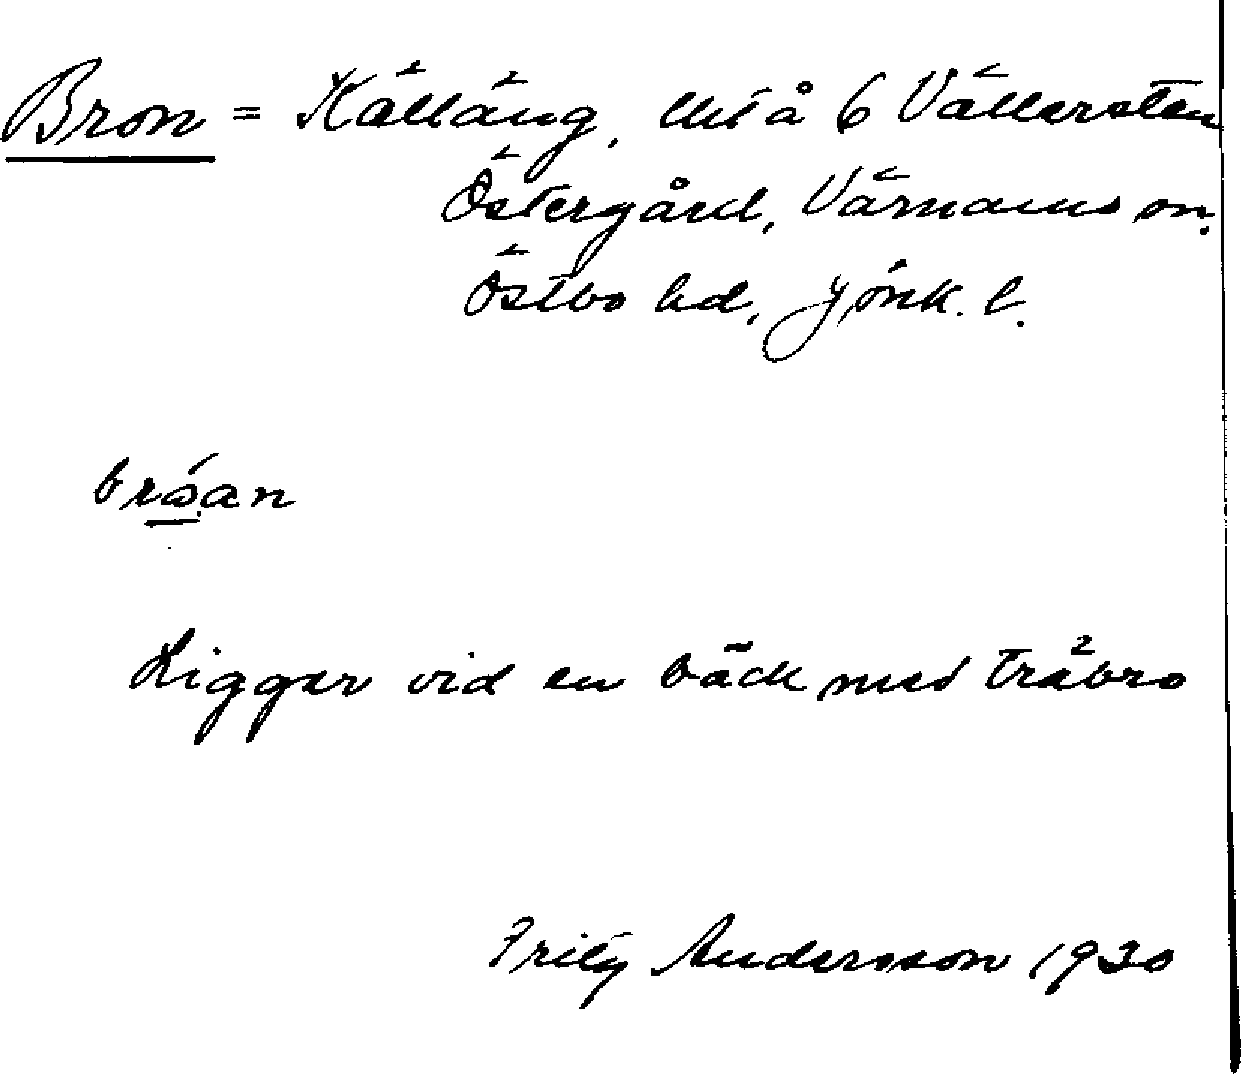 Bron = Källäng, lht å 6 Vällersten
Östergård, Värnamo sn.
Östbo hd, Jönk. l.
bróan
Ligger vid en bäck med träbro
Fritz Andersson 1930